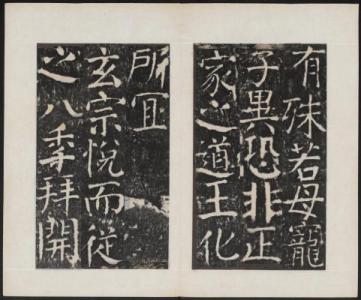 有殊若母寵
子異恐非正
家之道王化
所宜
玄宗悅而從
之八季拜開